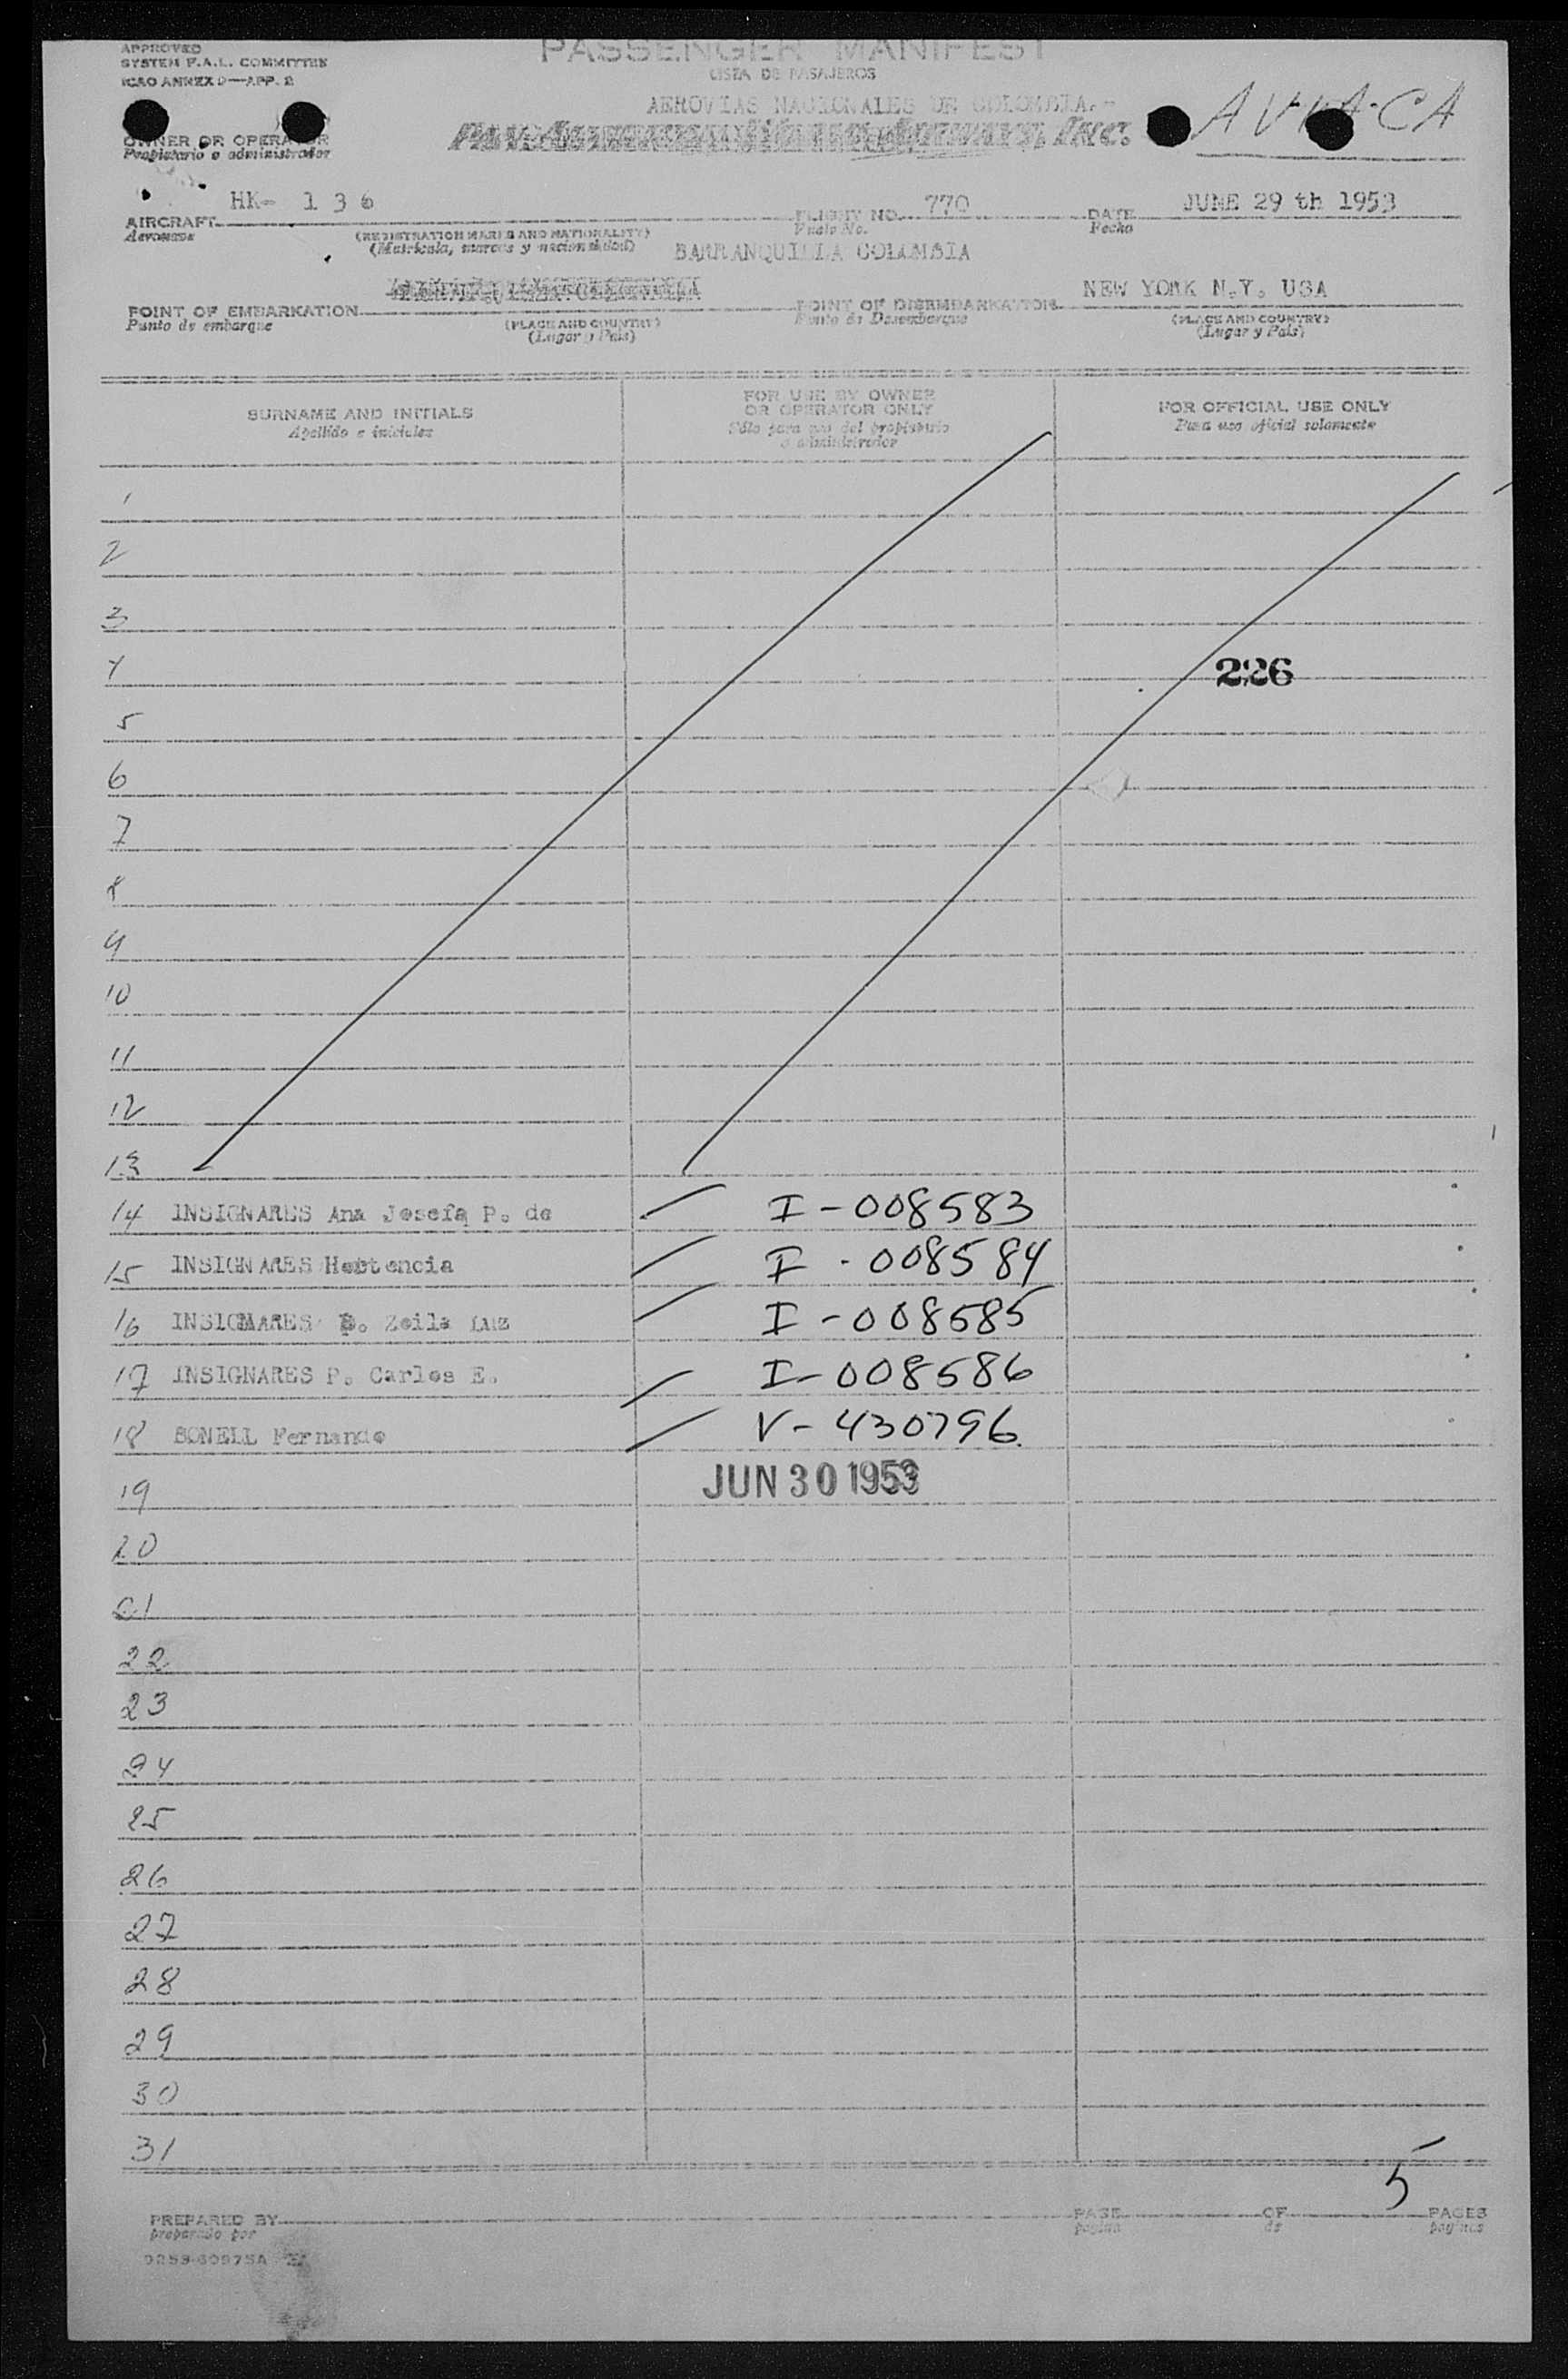 APPROVED
SYSTEM F.A.L. COMMITTEE
ICAO ANNEX 9—APP. 2
PASSENGER MANIFEST
LISTA DE PASAJEROS
AEROVIAS NACIONALES DE COLOMBIA.-
INC.
AVIA-CA
OWNER OR OPERATOR
Propietario o administrador
AIRCRAFT HK- 136
Aeronave
(REGISTRATION MARKS AND NATIONALITY)
(Matricula, marcas y nacionalidad)
FLIGHT NO. 770
Vuelo No.
DATE JUNE 29 th 1953
Fecha
BARRANQUILLA COLOMBIA
POINT OF EMBARKATION
Punto de embarque
(PLACE AND COUNTRY)
(Lugar y Pais)
POINT OF DISEMBARKATION NEW YORK N.Y. USA
Punto de Desembarque
(PLACE AND COUNTRY)
(Lugar y Pais)
SURNAME AND INITIALS
Apellido e iniciales
FOR USE BY OWNER
OR OPERATOR ONLY
Sólo para uso del propietario
o administrador
FOR OFFICIAL USE ONLY
Para uso oficial solamente
1
2
3
4
226
5
6
7
8
9
10
11
12
13
14 INSIGNARES Ana Josefa P. de I-008583
15 INSIGNARES Hortencia I-008584
16 INSIGNARES P. Zoila Luz I-008585
17 INSIGNARES P. Carlos E. I-008586
18 BONELL Fernando V-430796
19 JUN 30 1953
20
21
22
23
24
25
26
27
28
29
30
31
5
PREPARED BY
preparado por
PAGE OF PAGES
pagina de paginas